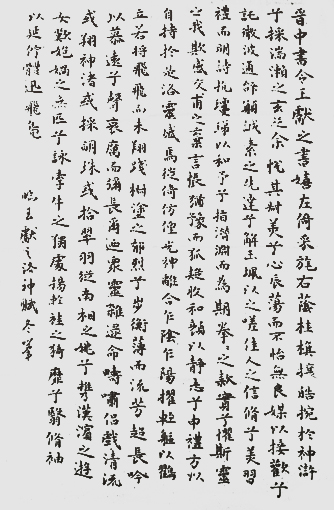 晉中書令王獻之書嬉左倚采旄右蔭桂旗攘皓捥於神滸
兮採湍瀨之玄芝余悅其淑美兮心振蕩而不怡無良媒以接歡兮
託微波通辭願誠素之先達兮解玉珮以之嗟佳人之信脩兮羌習
禮而明詩抗瓊珶以和予兮指潛淵而為期拳之款實兮懼斯靈
之我欺感交甫之棄言悵猶豫而狐疑收和顏以靜志兮申禮防以
自持於是洛靈感焉徙倚仿偟神光離合乍陰乍陽擢輕軀以鶴
立若將飛飛而未翔踐椒塗之郁烈兮步衡薄而流芳超長吟
以慕遠兮聲哀厲而彌長爾迺衆靈雜遝命疇嘯侶戲清流
或翔神渚或採明珠或拾翠羽從南湘之姚兮攜漢濱之遊
女歎匏媧之無匹兮詠牽牛之獨處揚輕袿之猗靡兮翳脩袖
以延佇體迅飛鳧
臨王獻之洛神賦